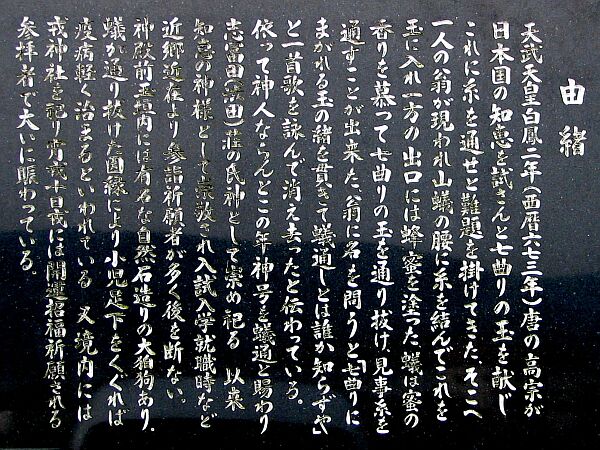 由緒
天武天皇白鳳二年(西暦六七三年)唐の高宗が
日本国の知恵を試さんと七曲りの玉を献じ
これに糸を通せと難題を掛けてきた、そこへ
一人の翁が現われ山蟻の腰に糸を結んでこれを
玉に入れ一方の出口には蜂蜜を塗った、蟻は蜜の
香りを慕って七曲りの玉を通り抜け、見事糸を
通すことが出来た、翁に名を問うと七曲りに
まがれる玉の緒を貫きて蟻通しとは誰か知らずや
と一首歌を詠んで消え去ったと伝わっている。
依って神人ならんとこの年神号を蟻通と賜わり
志富田(渋田)荘の氏神として崇め祀る 以来
知恵の神様として崇敬され入試入学就職時など
近郷近在より参詣祈願者が多く後を断ない。
神殿前玉垣内には有名な自然石造りの大狛狗あり、
蟻が通り抜けた因縁により小児足下をくぐれば
疫病軽く治まるといわれている 又境内には
戎神社を祀り宵戎十日戎には開運招福祈願される
参拝者で大いに賑わっている。